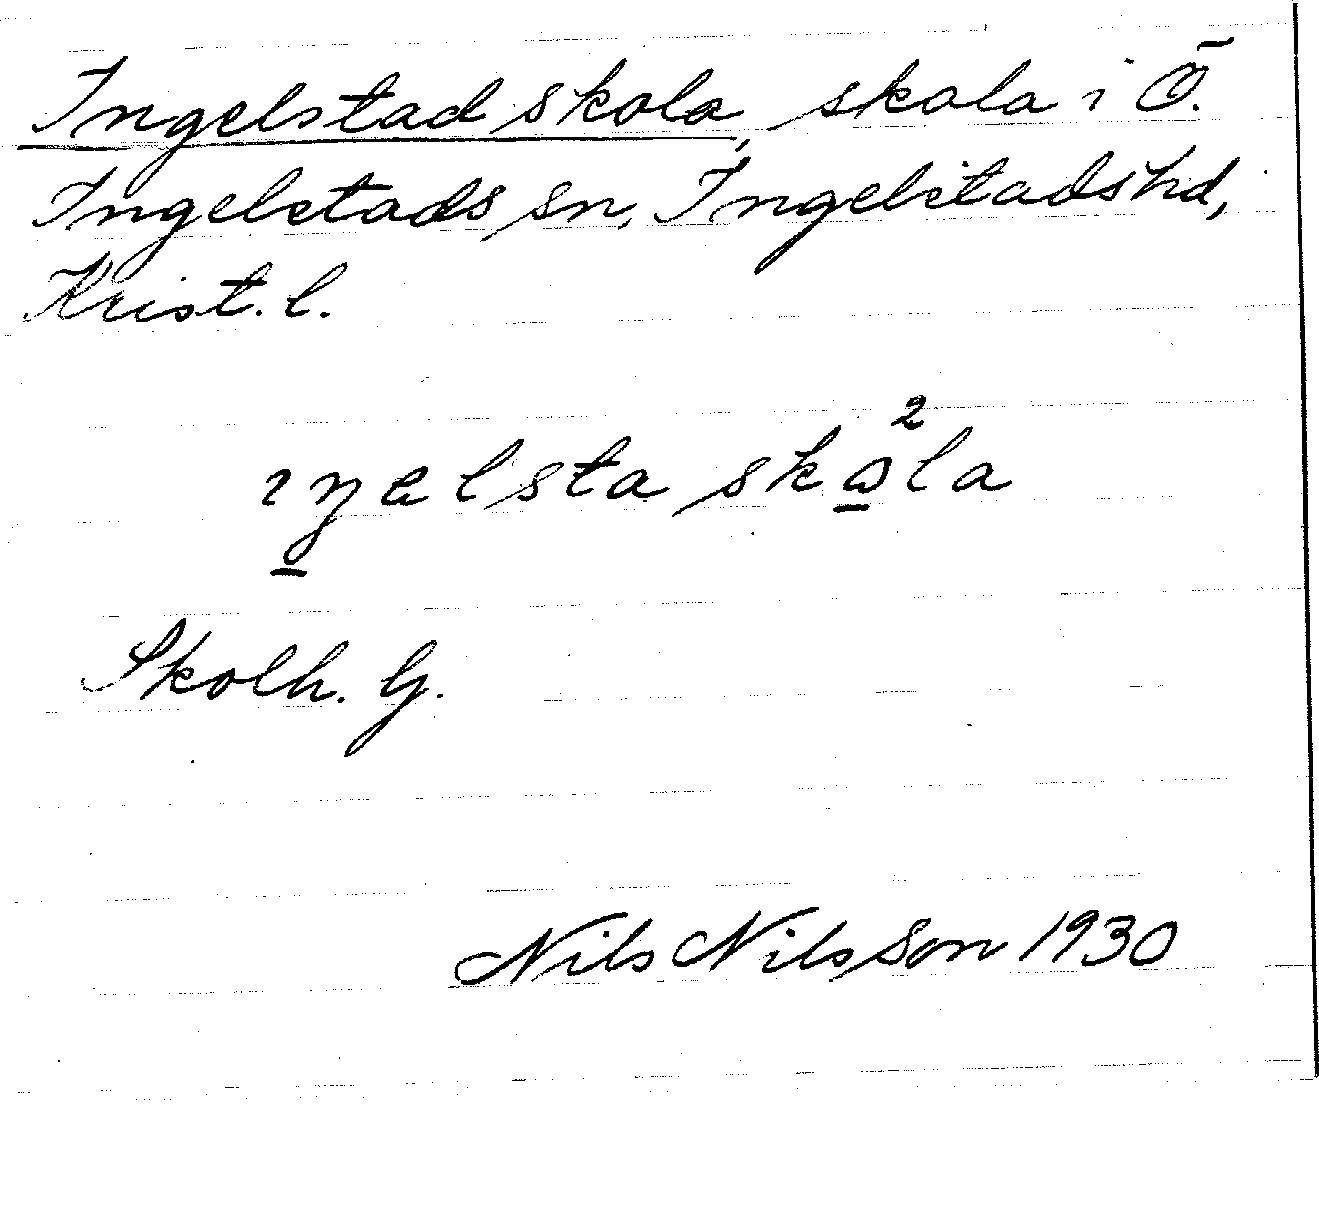 Ingelstad skola, skola i Ö.
Ingelstads sn, Ingelstads hd,
Krist. l.
ıŋelsta skωla
2
Skolh. G.
Nils Nilsson 1930